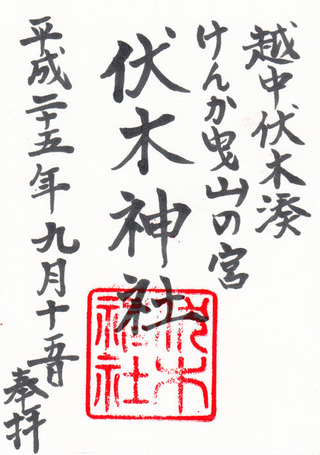 越中伏木湊
けんか曳山の宮
伏木神社
伏木
神社
平成二十五年九月十五日
奉拝